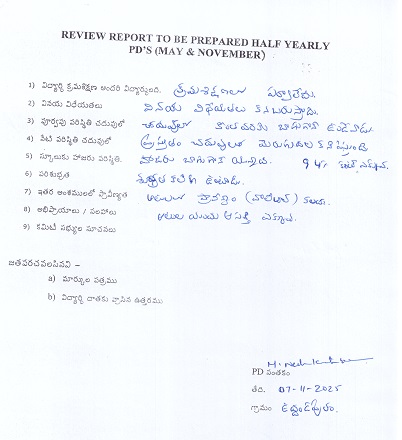 REVIEW REPORT TO BE PREPARED HALF YEARLY
PD'S (MAY & NOVEMBER)
1) విద్యార్థి క్రమశిక్షణ అందరి విద్యార్థులతో. క్రమశిక్షణలో పర్వాలేదు.
2) వినయ విధేయతలు వినయ విధేయతలు కనబరుస్తాడు.
3) పూర్వపు పరిస్థితి చదువులో చదువులో కొంతవరకు బాగుగానే ఉండేవాడు.
4) నేటి పరిస్థితి చదువులో ప్రస్తుతం చదువులో మెరుగుదల కనిపిస్తుంది
5) స్కూలుకు హాజరు పరిస్థితి. హాజరు బాగుగానే యున్నది. 94%
6) పరిశుభ్రత శుభ్రత కలిగి ఉంటాడు.
7) ఇతర అంశములలో ప్రావీణ్యత ఆటలలో ప్రావీణ్యం (వాలీబాల్) కలదు.
8) అభిప్రాయాలు / సలహాలు ఆటల యందు ఆసక్తి ఎక్కువ.
9) కమిటీ సభ్యుల సూచనలు
జతపరచవలసినవి –
a) మార్కుల పత్రము
b) విద్యార్థి దాతకు వ్రాసిన ఉత్తరము
PD సంతకం
తేది. 07-11-2025
గ్రామం